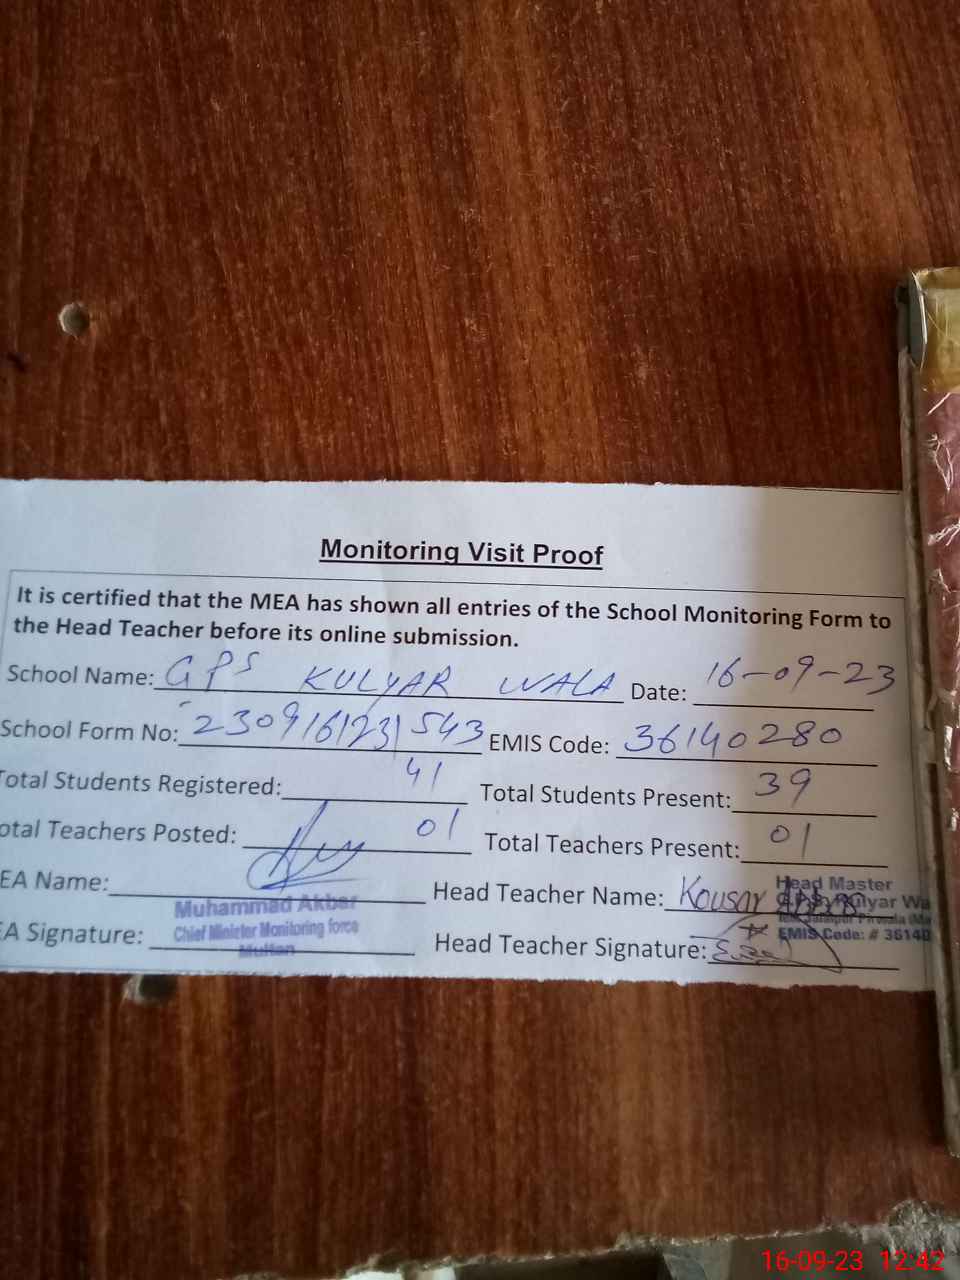 Monitoring Visit Proof
It is certified that the MEA has shown all entries of the School Monitoring Form to
the Head Teacher before its online submission.
School Name: GPS KULYAR WALA Date: 16-09-23
School Form No: 2309161231543 EMIS Code: 36140280
Total Students Registered: 41 Total Students Present: 39
otal Teachers Posted: 01 Total Teachers Present: 01
EA Name: Head Teacher Name: Kousar Abbas
Muhammad Akbar
Chief Minister Monitoring force
Multan
Head Master
G.P.S Kulyar Wa
Jalalpur Pirwala (Mu
EMIS Code: # 36140
EA Signature: Head Teacher Signature:
16-09-23 12:42